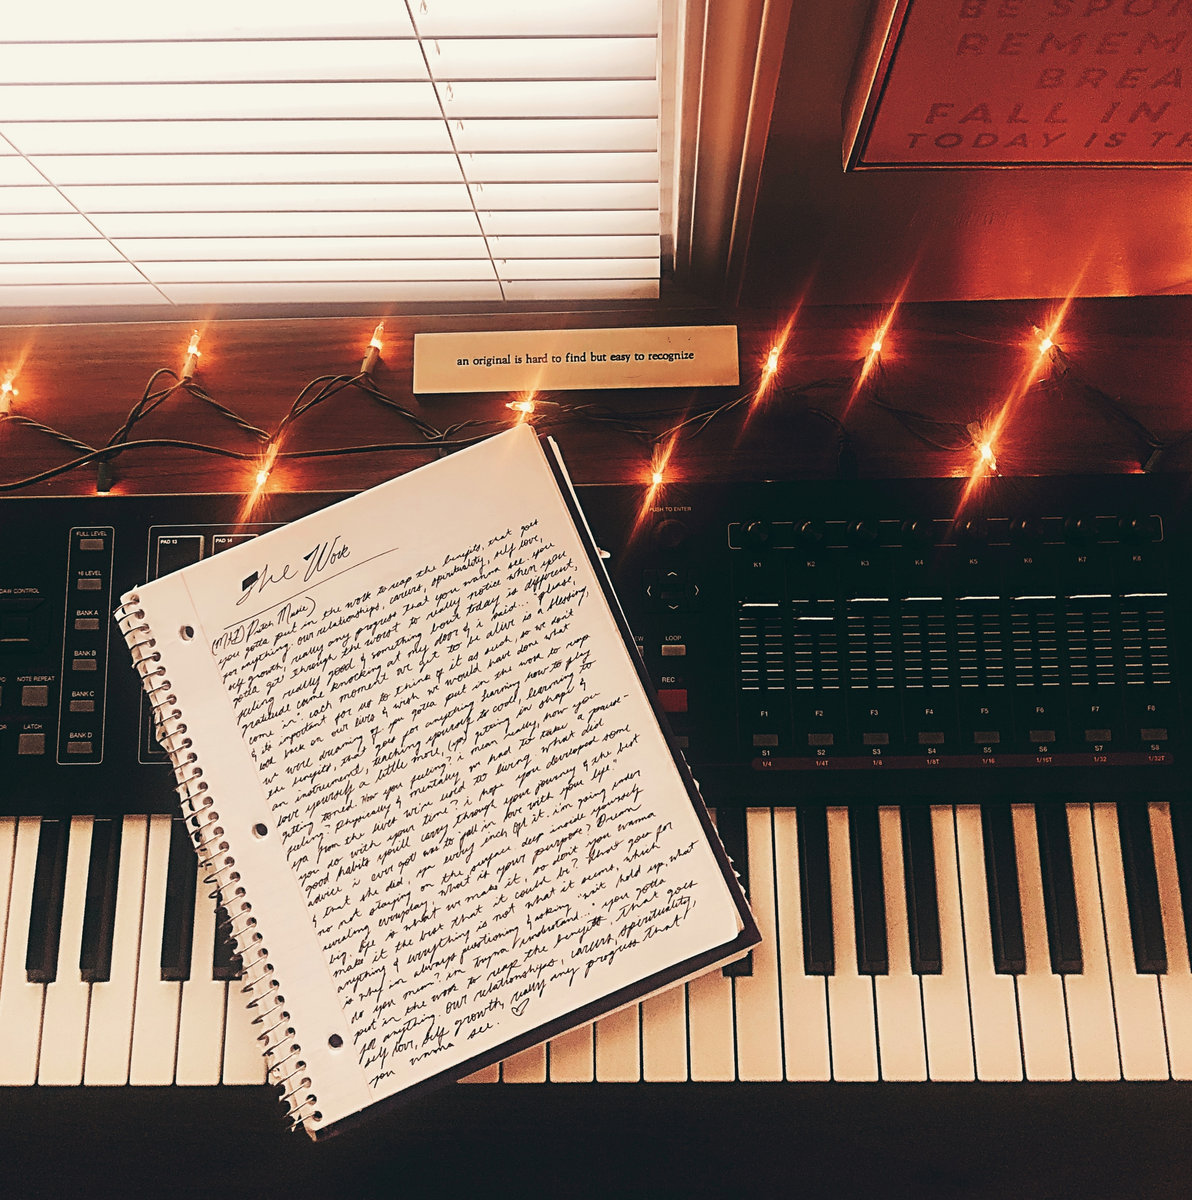 BE SPO
REMEM
BREA
FALL IN
TODAY IS T
an original is hard to find but easy to recognize
PUSH TO ENTER
FULL LEVEL
PAD 13 PAD 14
16 LEVEL
DAW CONTROL
BANK A
BANK B
NOTE REPEAT
BANK C
LATCH
BANK D
LOOP
REC
K1 K2 K3 K4 K5 K6 K7 K8
F1 F2 F3 F4 F5 F6 F7 F8
S1 S2 S3 S4 S5 S6 S7 S8
1/4 1/4T 1/8 1/8T 1/16 1/16T 1/32 1/32T
The Work
you gotta put in the work to reap the benefits, that goes
for anything. our relationships, careers, spirituality, self love,
self growth, really any progress that you wanna see. you
gotta get through the worst to really notice when you
feeling really good & something bout today is different,
gratitude came knocking at my door & i said... "please,
come in". each moment we get to be alive is a blessing,
& its important for us to think of it as such, so we don't
look back on our lives & wish we would have done what
we were dreaming of. you gotta put in the work to reap
the benefits, that goes for anything. learning how to play
an instrument, teaching yourself to cook, learning to
love yourself a little more, getting in shape &
getting toned. how you feeling? i mean really, how you
feeling? physically & mentally. its hard to take a pause
from the lives we're used to living. what did
you do with your time? i hope you developed some
good habits you'll carry through your journey & the best
advice i ever got was to "fall in love with your life."
& that she did, yea every inch of it. i'm going under
no not staying on the surface, deep inside yourself
everyday. what is your purpose? dream
big. life is what we make it, so don't you wanna
make it the best that it could be? that goes for
anything & everything is not what it seems, which
is why i'm always questioning & asking "wait hold up, what
do you mean? i'm tryna understand..." you gotta
put in the work to reap the benefits, that goes
for anything. our relationships, careers, spirituality,
self love, self growth, really any progress that
you wanna see. ♡